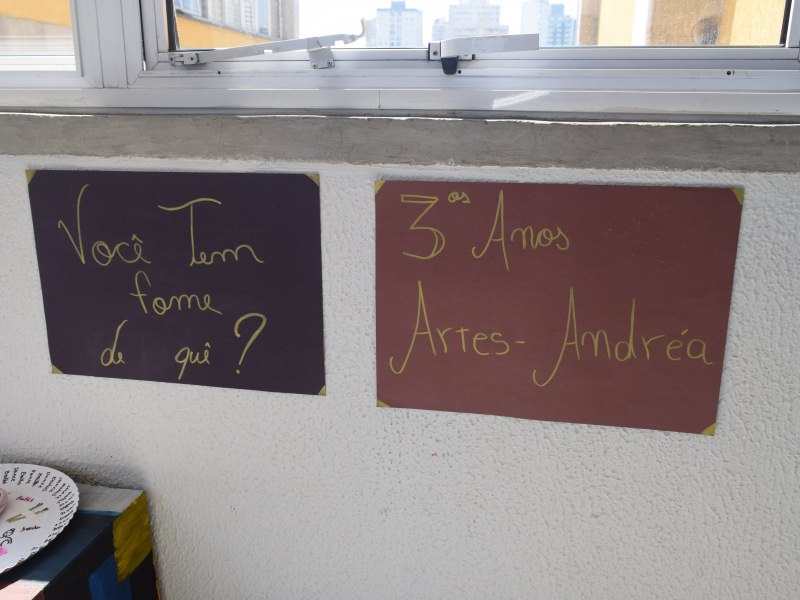 Você Tem
fome
de quê?
3os Anos
Artes- Andréa